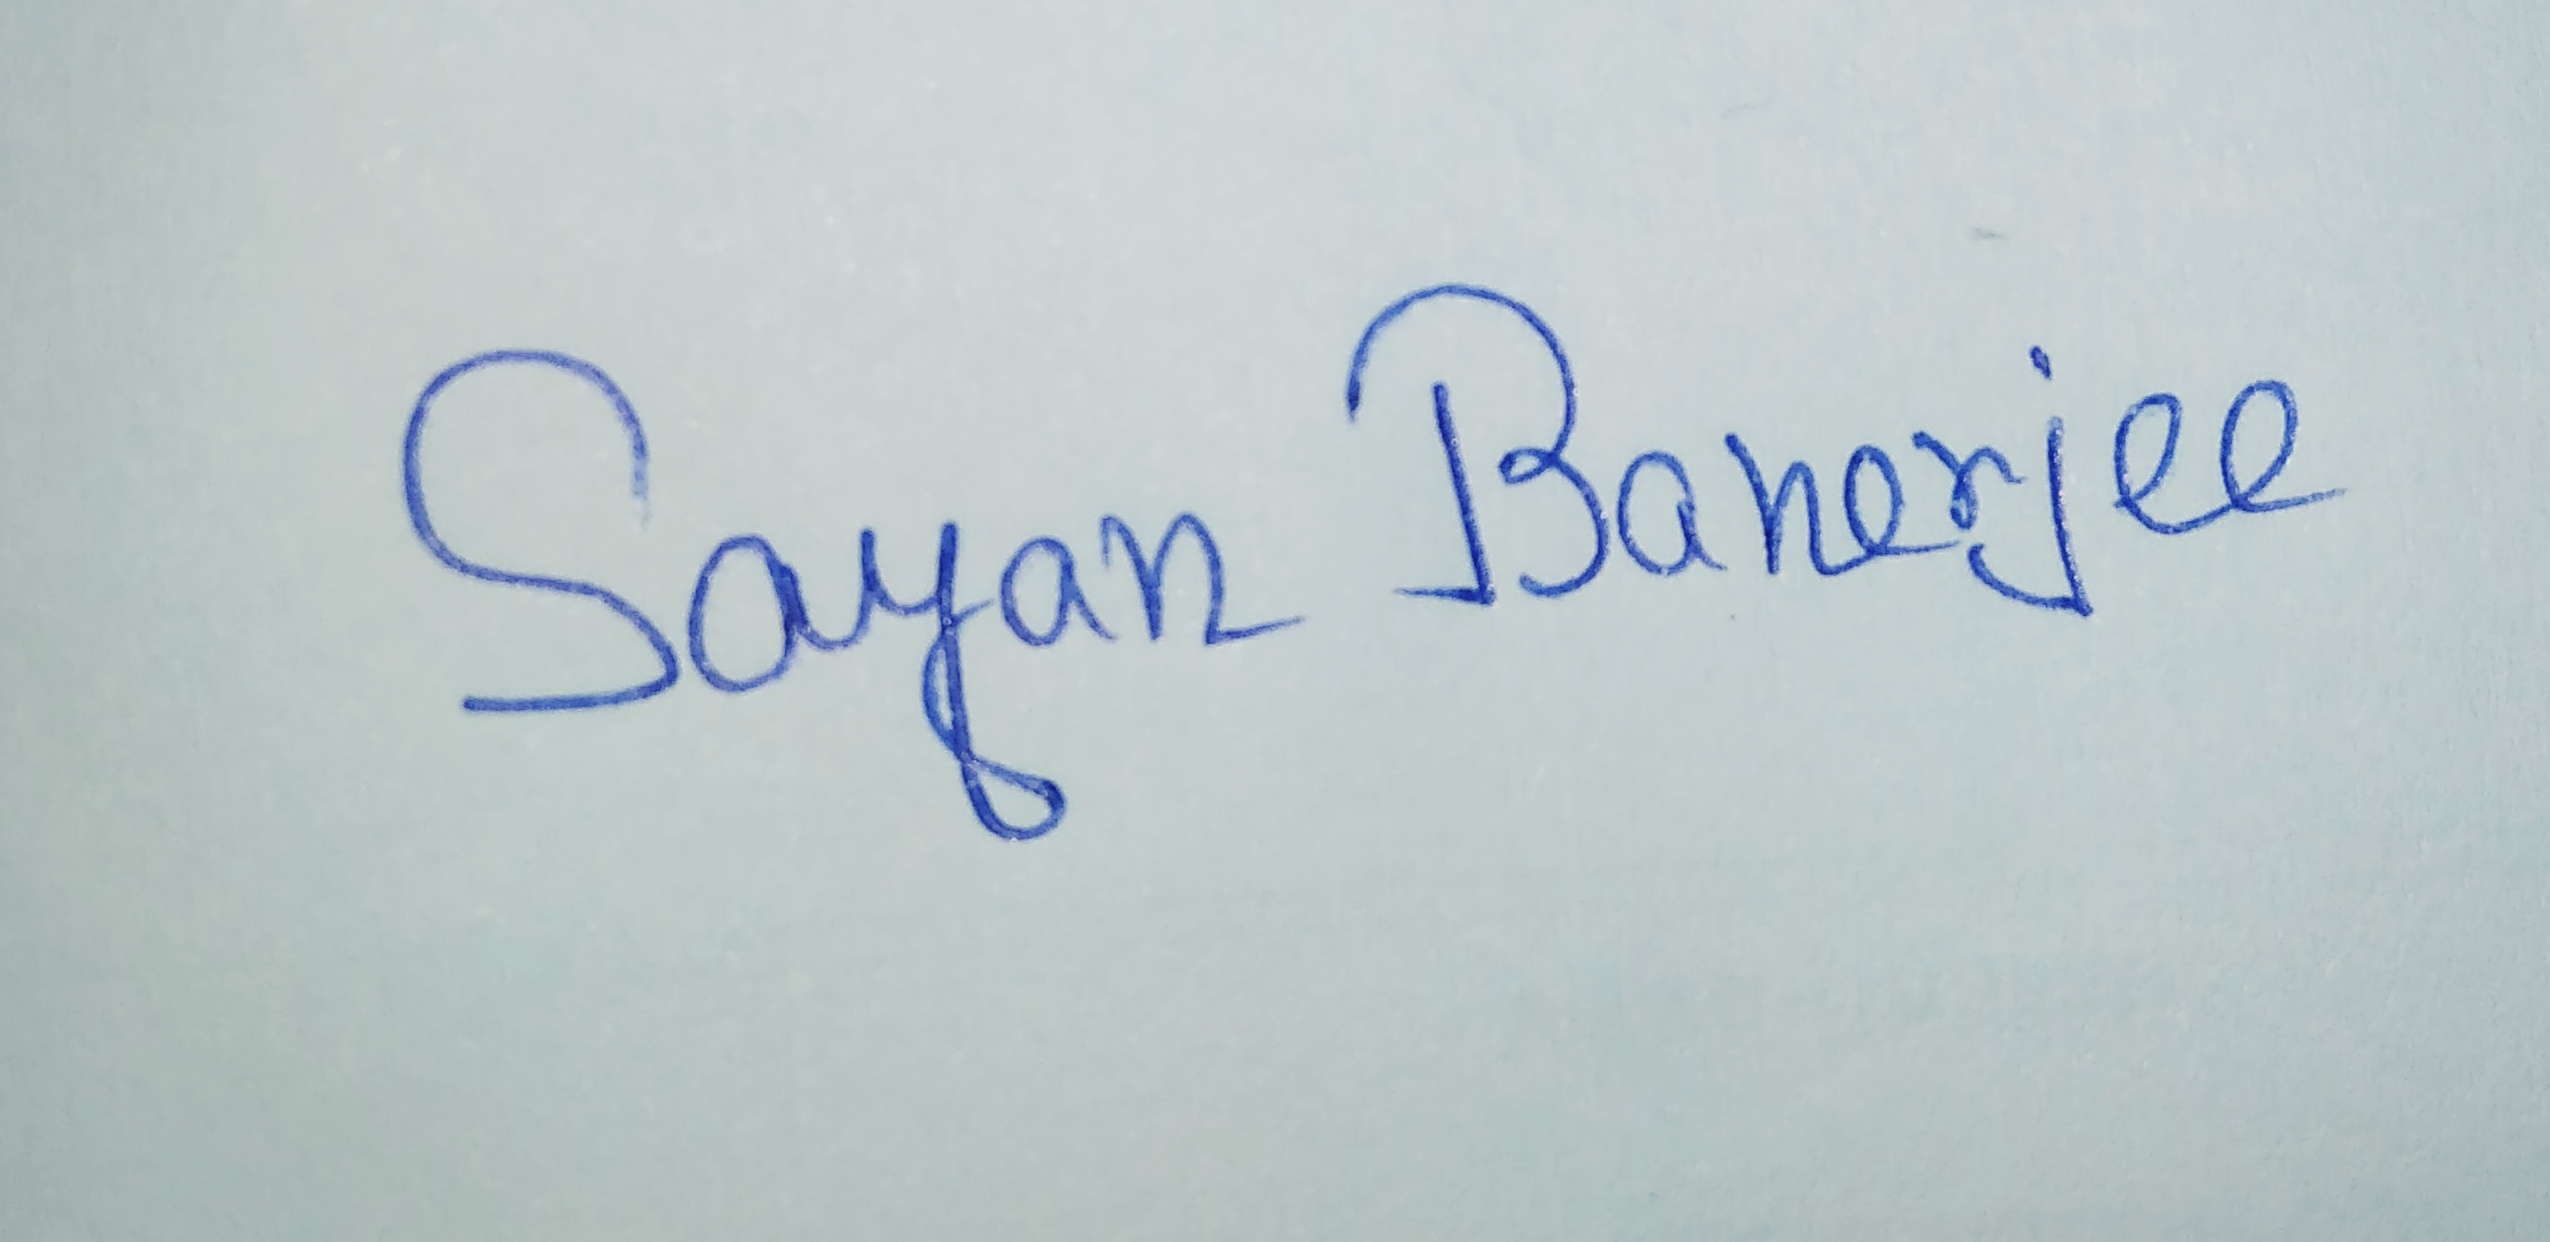 Sayan Banerjee